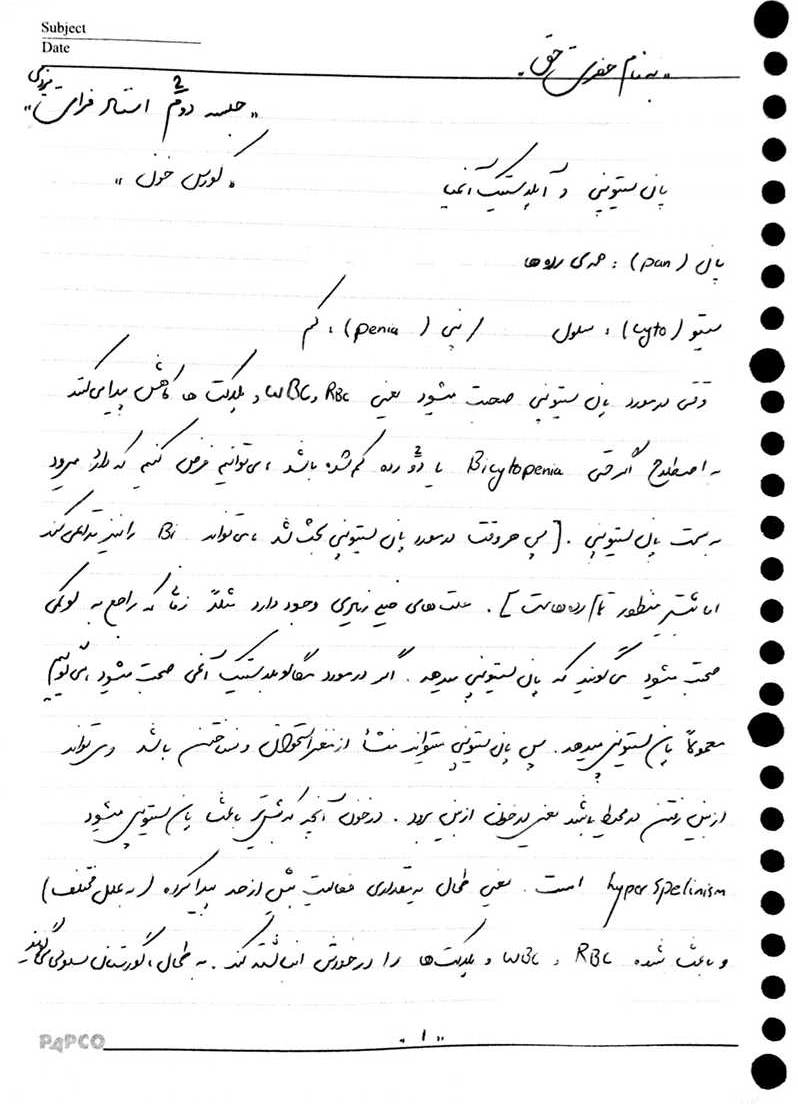 Subject
Date
" به نام حضرت حق "
" جلسه دوم 2 استاد فرات یزدی "
" کورس خون "
پان سیتوپنی و آپلاستیک آنمیا
پان (pan) : همه‌ی رده‌ها
سیتو (cyto) : سلول / پنی (penia) : کم
وقتی در مورد پان سیتوپنی صحبت میشود یعنی RBC و WBC و پلاکت ها کاهش پیدا می‌کنند
به اصطلاح اگر حتی Bicytopenia یا دو 2 رده کم شده باشد ، می‌توانیم فرض کنیم که دارد میرود
به سمت پان سیتوپنی . [ پس هر وقت در مورد پان سیتوپنی بحث شد ، می‌تواند Bi را نیز تداعی کند
اما بیشتر منظور تمام رده هاست ] . علت های خیلی زیادی وجود دارد مثلاً زمانی که راجع به لوکمی
صحبت میشود می‌گویند که پان سیتوپنی میدهد . اگر در مورد مگالوبلاستیک آنمی صحبت میشود ، می‌گوییم
معمولاً پان سیتوپنی میدهد . پس پان سیتوپنی میتواند منشأ از مغز استخوان و نساختن باشد و می‌تواند
از بین رفتن در محیط باشد یعنی در خون از بین برود . در خون آنچه که بیشتر باعث پان سیتوپنی میشود
hyper spelinism است . یعنی طحال به مقداری فعالیت بیش از حد پیدا کرده ( به علل مختلف )
و باعث شده RBC و WBC و پلاکت ها را در خودش انباشته کند . به طحال ، گورستان سلولی می‌گویند
PAPCO
" ۱ "